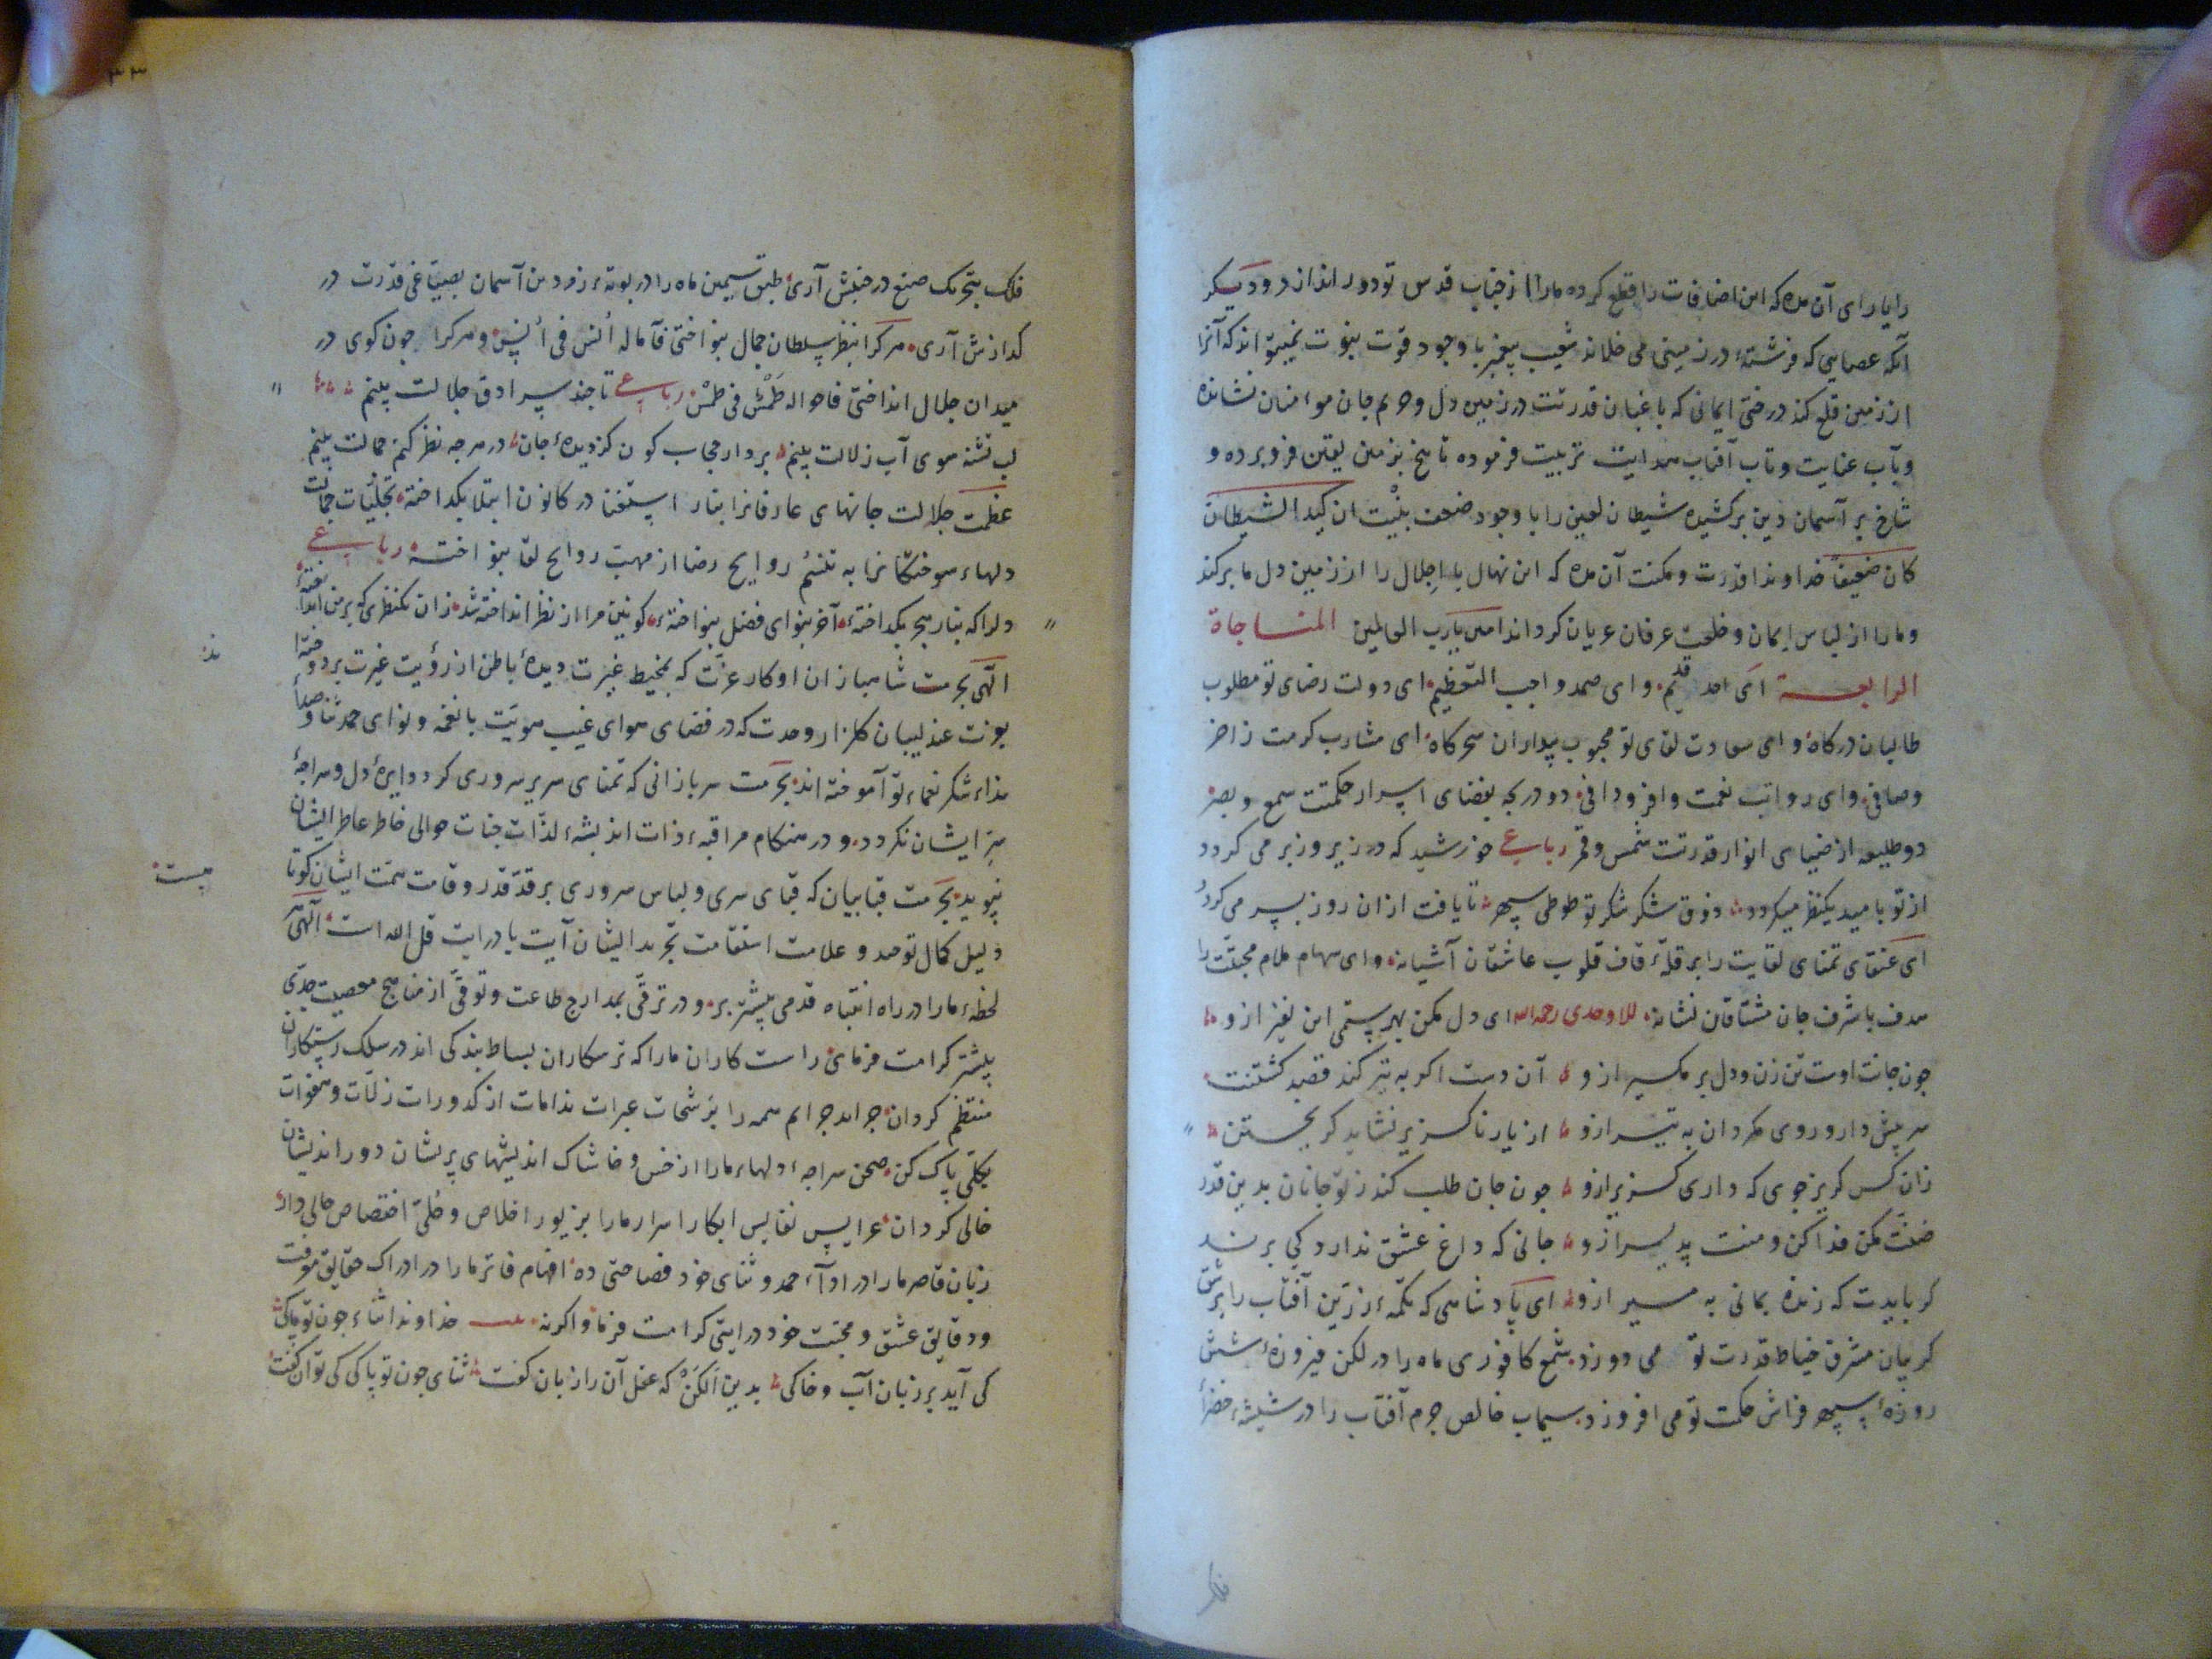 را یارای آن مده که این اضافات را قطع کرده ما را از جناب قدس تو دور اندازد و دیگر
آنکه عصایی که فرشتهٔ در زمینی می خلاند شعیب پیغمبر با وجود قوت نبوت نمیتواند که آنرا
از زمین قلع کند درختی ایمانی که باغبان قدرتت در زمین دل و حریم جان مؤمنان نشانده
و بآب عنایت و تاب آفتاب هدایت تربیت فرموده تا بیخ بزمین یقین فرو برده و
شاخ بر آسمان دین برکشیده شیطان لعین را با وجود ضعف بنیت ان کید الشیطان
کان ضعیفا خداوندا قدرت و مکنت آن مده که این نهال با اجلال را از زمین دل ما برکند
و ما را از لباس ایمان و خلعت عرفان عریان کرداند امین یا رب العالمین المناجاة
الرابعة ای احد قدیم و ای صمد واجب التعظیم ای دولت رضای تو مطلوب
طالبان درکاه و ای سعادت لقای تو محبوب بیداران سحرکاه ای مشارب کرمت زاخر
وصافی و ای رواتب نعمت وافر و وافی دو دریچه بفضای اسرار حکمتت سمع و بصر
دو طلیعه از ضیای انوار قدرتت شمس و قمر رباعی خورشید که در زیر و زبر می کردد
از تو بامید یکنظر میکردد ذوق شکر شکر تو طوطی سپهر تا یافت ازان روز بسر می کردد
ای عنقای تمنای لقایت را بر قلهٔ قاف قلوب عاشقان آشیانه و ای سهام ملام محبتت را
هدف با شرف جان مشتاقان نشانه للاوحدی رحمه الله ای دل مکن بهر ستمی این نفیر ازو
چون جانت اوست تن زن و دل بر مکیر ازو آن دست اکر به تیر کند قصد کشتنت
سر پیش دار و روی مکردان به تیر ازو از یار ناکزیر نشاید کریختن
زان کس کریز جوی که داری کزیر ازو چون جان طلب کند ز تو جانان بدین قدر
ضنت مکن فدا کن و منت پذیر ازو جانی که داغ عشق ندارد کی برند
کر بایدت که زنده بمانی بمیر ازو ای پادشاهی که تکمهٔ زرین آفتاب را بر شق
کریبان مشرق خیاط قدرت تو می دوزد شمع کافوری ماه را در لکن فیروزهٔ شش
روزهٔ سپهر فراش حکمت تو می افروزد سیماب خالص جرم آفتاب را در شیشهٔ خضرأ
فلک
۳۳
فلک بتحریک صنع در جنبش آری طبق سیمین ماه را در بوتهٔ زودین آسمان بصیاغی قدرت در
کدازش آری هر کرا بنظر سلطان جمال بنواختی فآماله انس فی انس و هر کرا چون کوی در
میدان جلال انداختی فاحواله طمس فی طمس رباعی تا چند سرادق جلالت بینم
لب تشنه سوی آب زلالت بینم بردار حجاب کون کز دیدهٔ جان در هرچه نظر کنم جمالت بینم
عظمت جلالت جانهای عارفانرا بنار استغنا در کانون ابتلا بکداخته تجلیات جمالت
دلهاء سوختکانرا به تنسم روایح رضا از مهب روایح لقا بنواخته رباعی
دلرا که بنار هجر بکداختهٔ آخر بنوای فضل بنواختهٔ کونین مرا از نظر انداخته شد زان یکنظری که بر من انداختهٔ
الهی بحرمت شاهبازان اوکار عزت که بمخیط غیرت دیدهٔ باطن از رؤیت غیرت بردوخته اند
بعزت عندلیبان کلزار وحدت که در فضای هوای غیب هویت با نغمه و نوای حمد ثنا و صداء
نداء شکر نعماء تو آموخته اند بحرمت سربازانی که تمنای سریر سروری کرد دایرهٔ دل و سراچهٔ
سر ایشان نکردد و در هنکام مراقبهٔ ذات اندیشهٔ لذات جنات حوالی خاطر عاطر ایشان
نپوید بحرمت قبابیان که قبای سری و لباس سروری بر قد قدر و قامت همت ایشان کوتا هیست
دلیل کمال توحد و علامت استقامت تجرید ایشان آیت با درایت قل الله است الهی
لحظهٔ ما را در راه انتباه قدمی پیشتر بر و در ترقی بمدارج طاعت و توقی از مناهج معصیت جدی
بیشتر کرامت فرمای راست کاران ما را که ترسکاران بساط بندکی اند در سلک رستکاران
منتظم کردان جراید جرایم همه را برشحات عبرات ندامات از کدورات زلات و هفوات
بکلی پاک کن صحن سراچهٔ دلهاء ما را از خس و خاشاک اندیشهای پریشان دور اندیشان
خالی کردان عرایس نفایس ابکار اسرار ما را بزیور اخلاص و حلی اختصاص حالی دار
زبان قاصر ما را در ادآء حمد و ثنای خود فصاحتی ده افهام فاتر ما را در ادراک حقایق معرفت
و دقایق عشق و محبت خود درایتی کرامت فرما و اکرنه خداوندا ثناء چون تو پاکی
کی آید بر زبان آب و خاکی بدین الکن که عقل آن را زبان کفت ثنای چون تو پاکی کی توان کفت